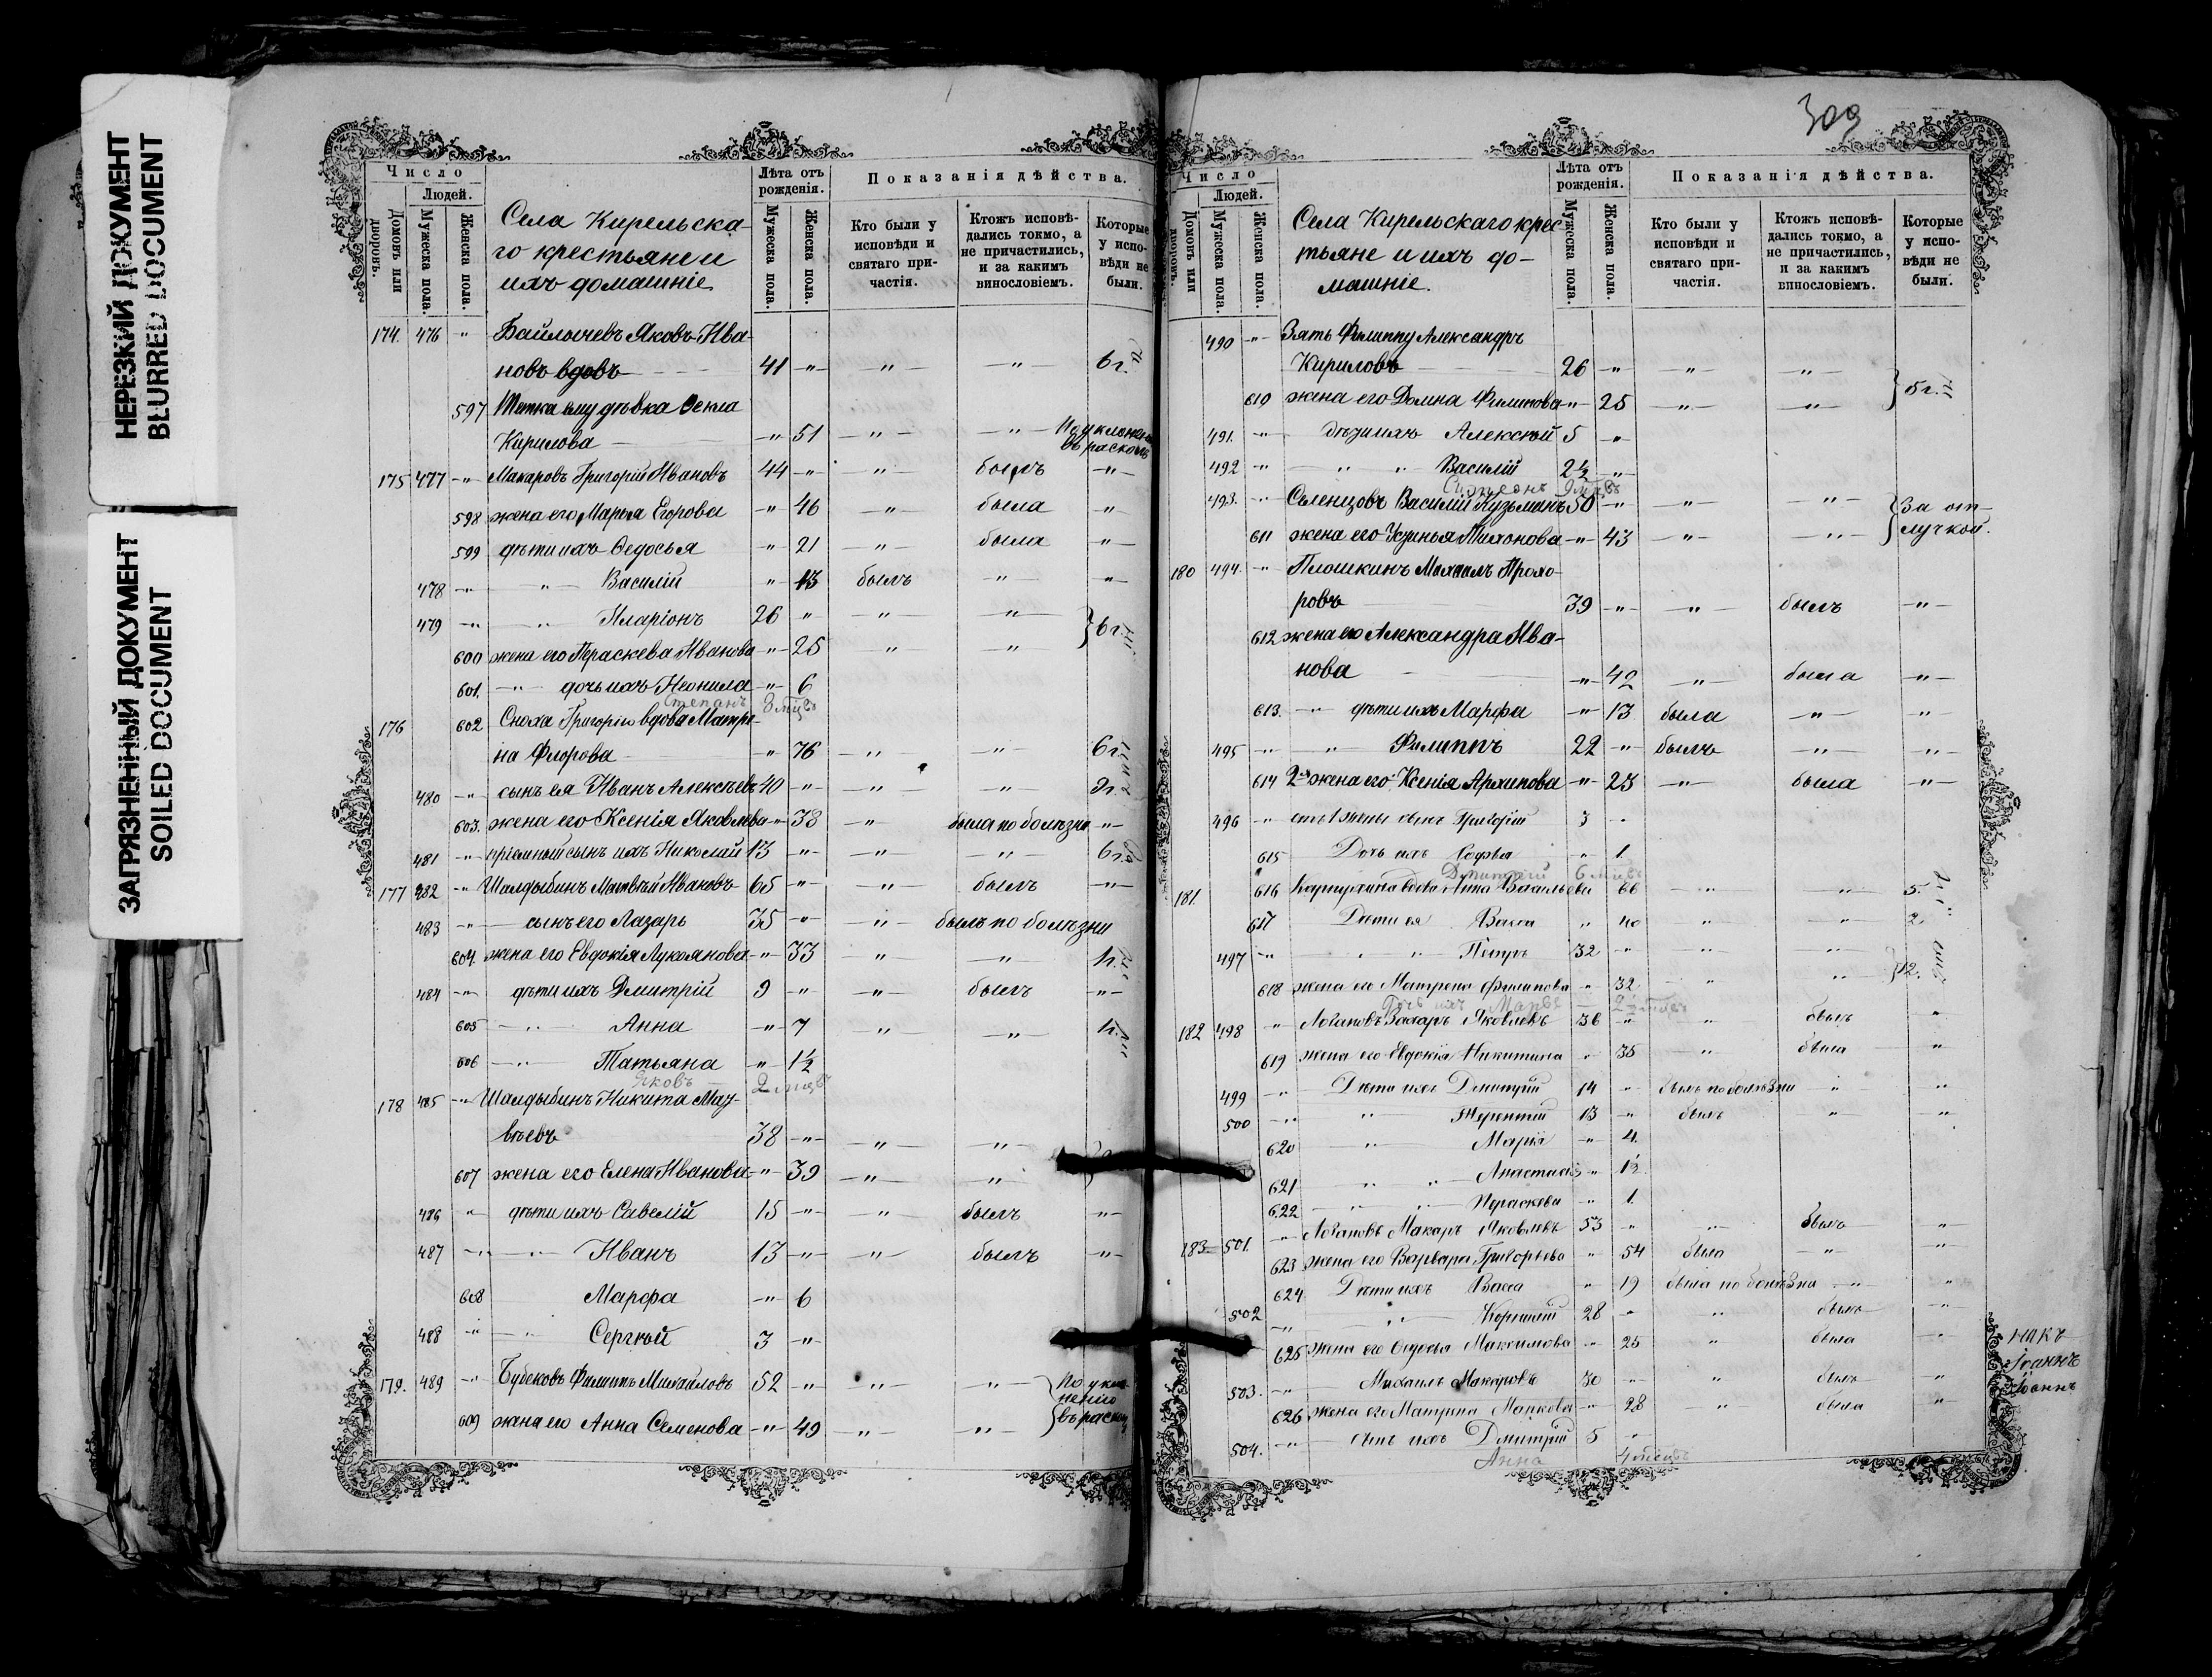 НЕРЕЗКИЙ ДОКУМЕНТ
BLURRED DOCUMENT
ЗАГРЯЗНЕННЫЙ ДОКУМЕНТ
SOILED DOCUMENT
Число
Людей.
Домовъ или дворовъ.
Мужеска пола.
Женска пола.
Села Кирельска-
го крестьяне и
ихъ домашніе
Лѣта отъ рожденія.
Мужеска пола.
Женска пола.
Показанія дѣйства.
Кто были у исповѣди и святаго при-частія.
Ктожъ исповѣ-дались токмо, а не причастились, и за какимъ винословіемъ.
Которые у испо-вѣди не были.
174. 476 " Байлычевъ Яковъ Ива-
новъ вдовъ 41 " " " 6 г.
597 Тетка ему дѣвка Ѳекла
Кирилова " 51 " "
въ расколъ
175 477 " Макаровъ Григорій Ивановъ 44 " " былъ "
598 жена его Марья Егорова " 46 " была "
599 дѣти ихъ Ѳедосья " 21 " была "
478 " " Василій " 13 былъ " "
479 " " Иларіонъ 26 " " " } 6 г.
600 жена его Параскева Иванова " 25 " "
601. " дочь ихъ Неонила " 6
Степанъ 8 мцвъ
176 602 Сноха Григорію вдова Матре-
на Флорова " 76 " " 6 г.
480 " сынъ ея Иванъ Алексѣевъ 40 " " " 2 г.
603. жена его Ксенія Яковлева " 38 " была по болѣзни "
481 " пріемный сынъ ихъ Николай 13 " " " 6 г.
177 482 " Шалдыбинъ Матвѣй Ивановъ 65 " " былъ "
483 " сынъ его Лазарь 35 " " былъ по болѣзни
604. жена его Евдокія Лукоянова " 33 " "
484 " дѣти ихъ Дмитрій 9 " " былъ "
605 " Анна " 7 " "
606 " Татьяна " 1½
Яковъ 2 мцвъ
178 485 " Шалдыбинъ Никита Мат-
вѣевъ 38 " " "
607 жена его Елена Иванова " 39 " "
486 " дѣти ихъ Савелій 15 " " былъ "
487 " " Иванъ 13 " " былъ "
608 Марфа " 6
488 " " Сергѣй 3 "
179. 489 " Бубековъ Филиппъ Михайловъ 52 " " "
609 жена его Анна Семенова " 49 " " } въ расколъ
309
Число
Людей.
Домовъ или дворовъ.
Мужеска пола.
Женска пола.
Села Кирельскаго крес-
тьяне и ихъ до-
машніе.
Лѣта отъ рожденія.
Мужеска пола.
Женска пола.
Показанія дѣйства.
Кто были у исповѣди и святаго при-частія.
Ктожъ исповѣ-дались токмо, а не причастились, и за какимъ винословіемъ.
Которые у испо-вѣди не были.
490 " Зять Филиппу Александръ
Кириловъ 26 " " "
610 жена его Домна Филипова " 25 " " } 5 г.
491. " дѣти ихъ Алексѣй 5 "
492 " " " Василій 2½ "
Симеонъ 9 мцвъ
493. " Селенцовъ Василій Кузьминъ 50 " " " } За от-
611 жена его Устинья Тихонова " 43 " " лучкой.
180 494. " Плошкинъ Михаилъ Прохо-
ровъ 39 " " былъ "
612 жена его Александра Ива-
нова " 42 " была "
613. " дѣти ихъ Марфа " 13 была " "
495 " " Филиппъ 22 " былъ " "
614 2я жена его Ксенія Архипова " 23 " была "
496 " отъ 1 жены сынъ Григорій 3 "
615 Дочь ихъ Софья " 1.
Дмитрій 6 мцвъ
181. 616 вдова Анна Васильева 66 " " 5.
617 Дѣти ея Васса " 40 " " 2.
497 " " " Петръ 32 " " "
618 жена его Матрена Филипова " 32 " " } 12.
Дочь ихъ
182 498 " Логановъ Захаръ Яковлевъ 36 " " былъ "
619 жена его Евдокія Никитина " 35 " была "
499 " Дѣти ихъ Дмитрій 14 " былъ по болѣзни " "
500 " " Терентій 13 " былъ " "
620 " Марія " 4.
621 " " Анастасія " 1½
622 " " Параскева " 1.
183 501. " Логановъ Макаръ Яковлевъ 53 " " былъ "
623 жена его Варвара Григорьева " 54 была " "
624 Дѣти ихъ Васса " 19 была по болѣзни " "
502 " " 28 " " былъ "
625 жена его Ѳедосья Максимова " 25 " была "
503. " Михаилъ Макаровъ 30 " " былъ "
626 жена его Матрена " 28 " была "
504. " сынъ ихъ Дмитрій 5 "
Анна 4 мцвъ